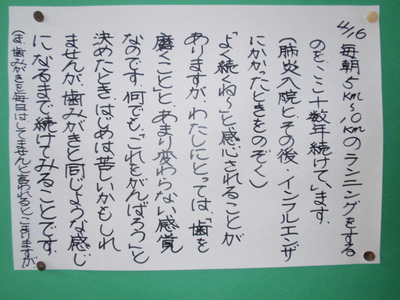 4/16 毎朝5km、10kmのランニングをする
のを、ここ十数年続けています。
(肺炎入院とその後・インフルエンザ
にかかったときをのぞく)
「よく続くね〜」と感心されることが
ありますが、わたしにとっては「歯を
磨くこと」と、あまり変わらない感覚
なのです。何でも、「これをがんばろう」と
決めたときはじめは苦しいかもしれ
ませんが、歯みがきと同じような感じ
になるまで続けてみることです。
(ま、歯みがきを毎日はしてませんと言われるとこまりますが